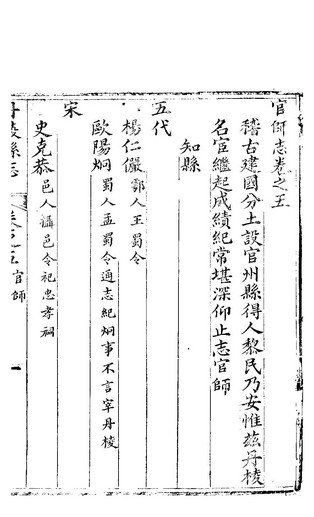 官師志卷之五
稽古建國分土設官州縣得人黎民乃安惟玆丹棱
名宦繼起成績紀常堪深仰止志官師
知縣
五代
楊仁儼 鄠人王蜀令
歐陽炯 蜀人孟蜀令通志紀炯事不言宰丹棱
宋
史克恭 邑人攝邑令祀忠孝祠
丹棱縣志 卷之五 官師